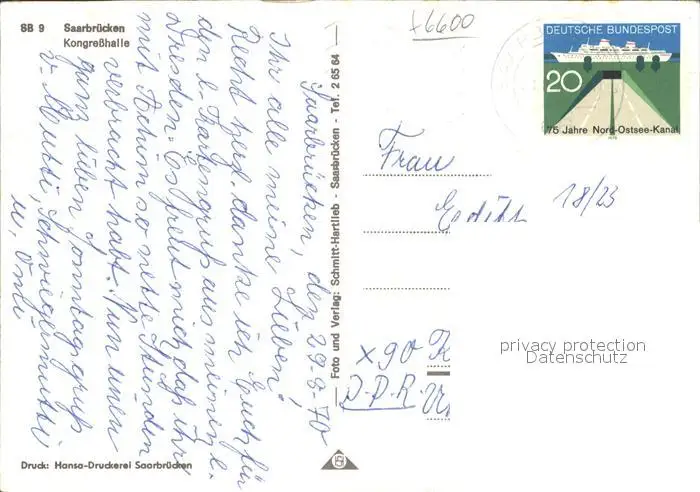 SB 9 Saarbrücken
Kongreßhalle
x6600
DEUTSCHE BUNDESPOST
20
75 Jahre Nord-Ostsee-Kanal
Saarbrücken, den 29.8.70
Ihr alle meine Lieben!
Recht herzl. danke ich Euch für
den l. Kartengruß aus meinem l.
Dresden. Es freut mich daß ihr
mit Achim so nette Stunden
verbracht habt. Nun einen
ganz lieben Sonntagsgruß
v. Mutti, Schwiegermutti
u. Omi
Foto und Verlag: Schmitt-Hartlieb - Saarbrücken - Tel. 2 65 64
Frau
Edith
18/23
x90
D.D.R.
privacy protection
Datenschutz
Druck: Hansa-Druckerei Saarbrücken